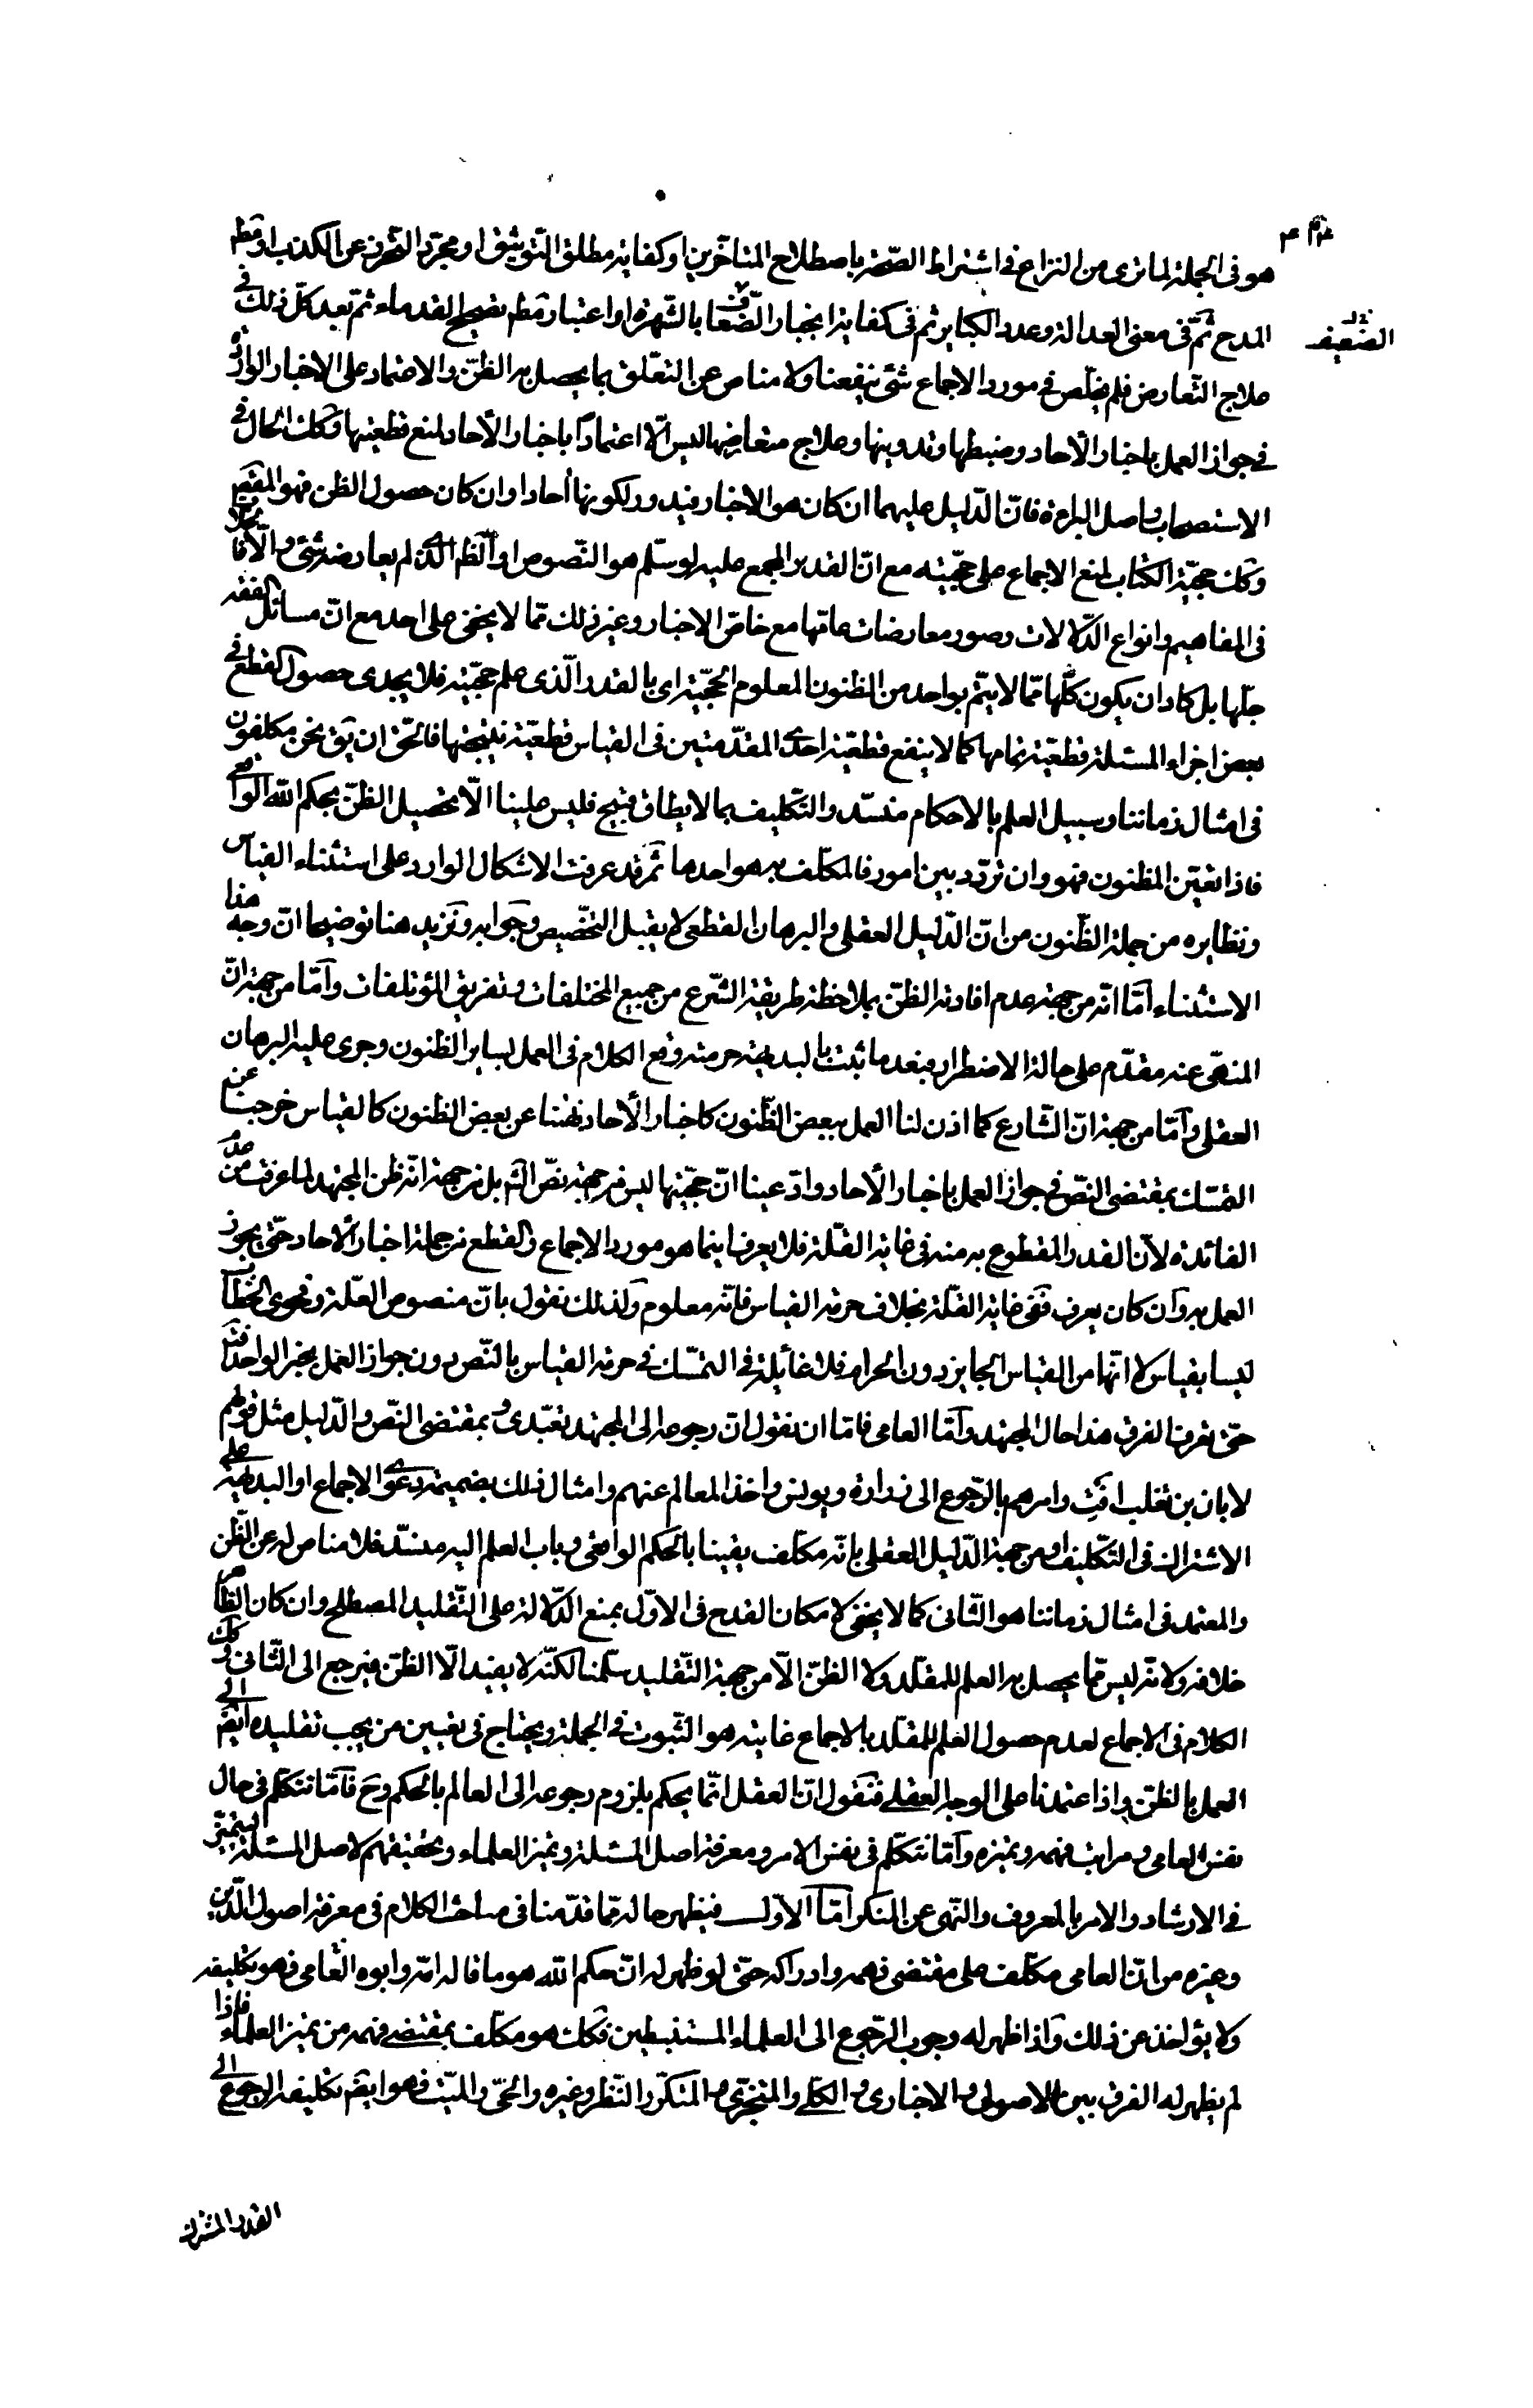 هو فى الجملة لما ترى من النزاع فى اشتراط الصّحة باصطلاح المتاخّرين او كفاية مطلق التّوثيق او مجرّد التحّرز عن الكذب او مط
المدح ثمّ فى معنى العدالة وعدد الكبائر ثم فى كفاية انجبار الضّعاف بالشّهرة او اعتبار مط تصحيح القدماء ثمّ بعد كلّ ذلك فى
الضّعيف
علاج التّعارض فلم يخلص فى مورد الاجماع شئ ينفعنا ولا مناص عن التعّلق بما يحصل به الظنّ والاعتماد على الاخبار الواردة
فى جواز العمل باخبار الآحاد وضبطها وتدوينها وعلاج متعارضها ليس الّا اعتمادًا باخبار الآحاد لمنع قطعيتها وكك الحال فى
الاستصحاب واصل البراءة فانّ الدّليل عليهما ان كان هو الاخبار فيدور لكونها آحادا وان كان حصول الظن فهو المقيم
وكك حجيّة الكتاب لمنع الاجماع على حجّيته مع انّ القدر المجمع عليه لو سلّم هو النّصوص او الظّاهر الذى لم يعارضه شئ والّا فالكلام
فى المفاهيم وانواع الدّلالات وصور معارضات عامّها مع خاصّ الاخبار وغير ذلك ممّا لا يخفى على احد مع انّ مسائل الفقه
جلّها بل كاد ان يكون كلّها ممّا لا يتمّ بواحد من الظنون المعلوم الحجّية اى بالقدر الّذى علم حجّيته فلا يجدى حصول القطع فى
بعض اجزاء المسئلة قطعيّة تمامها كما لا ينفع قطعيّة احدى المقدّمتين فى القياس قطعيّة نتيجتها فالحقّ ان يق نحن مكلفون
فى امثال زماننا وسبيل العلم بالاحكام منسّد والتّكليف بما لا يطاق قبيح فليس علينا الّا تحصيل الظنّ بحكم اللّه الواقعى
فاذا تعيّن المظنون فهو وان تردّد بين امور فالمكلّف به هو احدها ثمّ قد عرفت الاشكال الوارد على استثناء القياس
ونظايره من جملة الظّنون من انّ الدّليل العقلى والبرهان القطعى لا يقبل التخّصيص وجوابه ونزيد هنا توضيحا انّ وجه هذا
الاستثناء امّا انّه من جهة عدم افادته الظنّ بملاحظة طريقة الشّرع من جميع المختلفات وتفريق المؤتلفات وامّا من جهة انّ
المنهّى عنه مقدّم على حالة الاضطرار فبعد ما ثبت بالبديهة حرمته وقع الكلام فى العمل بساير الظنون وجرى عليه البرهان
العقلى وامّا من جهة انّ الشّارع كما اذن لنا العمل ببعض الظّنون كاخبار الآحاد نهانا عن بعض الظنون كالقياس خرجنا عن
التمّسك بمقتضى النّص فى جواز العمل باخبار الآحاد وادّعينا انّ حجّيتها ليس من جهة نصّ الشّارع بل من جهة انّه ظن المجتهد لما عرفت من عدم
الفائدة لانّ القدر المقطوع به منه فى غاية القلّة فلا يعرف اينما هو مورد الاجماع والقطع من جملة اخبار الآحاد حتّى يجوز
العمل به وان كان يعرف ففى غاية القلّة بخلاف حرمة القياس فانّه معلوم ولذلك نقول بانّ منصوص العّلة وفحوى الخطاب
ليسا بقياس لا انّهما من القياس الجايز دون الحرام فلا غائلة فى التمّسك فى حرمة القياس بالنّص دون جواز العمل بخبر الواحد فتدبر
حتّى تعرف الفرق هذا حال المجتهد وامّا العامى فامّا ان نقول انّ رجوعه الى المجتهد تعبّدى وبمقتضى النّص والدّليل مثل قولهم
لابان بن تغلب افت وامرهم بالرّجوع الى زرارة ويونس واخذ المعالم عنهم وامثال ذلك بضميمة دعوى الاجماع او البديهة على
الاشتراك فى التّكليف او من جهة الدّليل العقلى بانّه مكلّف يقينا بالحكم الواقعى وباب العلم اليه منسّد فلا مناص له عن الظّن
والمعتمد فى امثال زماننا هو الثّانى كما لا يخفى لامكان القدح فى الاوّل بمنع الدّلالة على التّقليد المصطلح وان كان الظاهر
خلافه ولانّه ليس ممّا يحصل به العلم للمقلّد ولا الظنّ الّا من جهة التّقليد سلّمنا لكنّه لا يفيد الّا الظنّ فيرجع الى الثّانى وكك
الكلام فى الاجماع لعدم حصول العلم للمقلّد بالاجماع غايته هو الثّبوت فى الجملة ويحتاج فى تعيين من يجب تقليده ايضا الى
العمل بالظنّ واذا اعتمدنا على الوجه العقلى فنقول انّ العقل انّما يحكم بلزوم رجوعه الى العالم بالحكم وح فامّا نتكلّم فى حال
نفس العامى ومراتب فهمه وتميزه وامّا نتكلّم فى نفس الامر ومعرفة اصل المسئلة وتميز العلماء وتحقيقهم لاصل المسئلة
فى الارشاد والامر بالمعروف والنّهى عن المنكر امّا الاوّل فيظهر حاله ممّا قدّمنا فى مباحث الكلام فى معرفة اصول الدّين
وغيره من انّ العامى مكلّف على مقتضى فهمه وادراكه حتّى لو ظهر له انّ حكم اللّه هو ما قاله امّه وابوه العامى فهو تكليفه
ولا يؤاخذ عن ذلك واذا ظهر له وجوب الرّجوع الى العلماء المستنبطين فكك هو مكلّف بمقتضى فهمه من تميز العلماء فاذا
لم يظهر له الفرق بين الاصولى والاخبارى والكلّى والمتجزّى والمتكّرر النّظر وغيره والحّى والميّت فهو ايضا تكليفه الرجوع الى
القدر المشترك